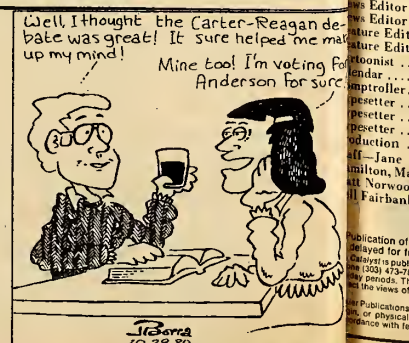 Well, I thought the Carter-Reagan de-
bate was great! It sure helped me
up my mind!
Mine too! I'm voting for
Anderson for sure
Ibarra
10.29.80
ews Editor
ews Editor
ature Edit
ature Edit
rtoonist
lendar
mptroller
pesetter
pesetter
pesetter
oduction
aff—Jane
amilton, Ma
att Norwoo
ll Fairban
Publication of
delayed for
Catalyst is publ
ne (303) 473-7
day periods. Th
ect the views of
Publications
gin, or physical
ordance with fe